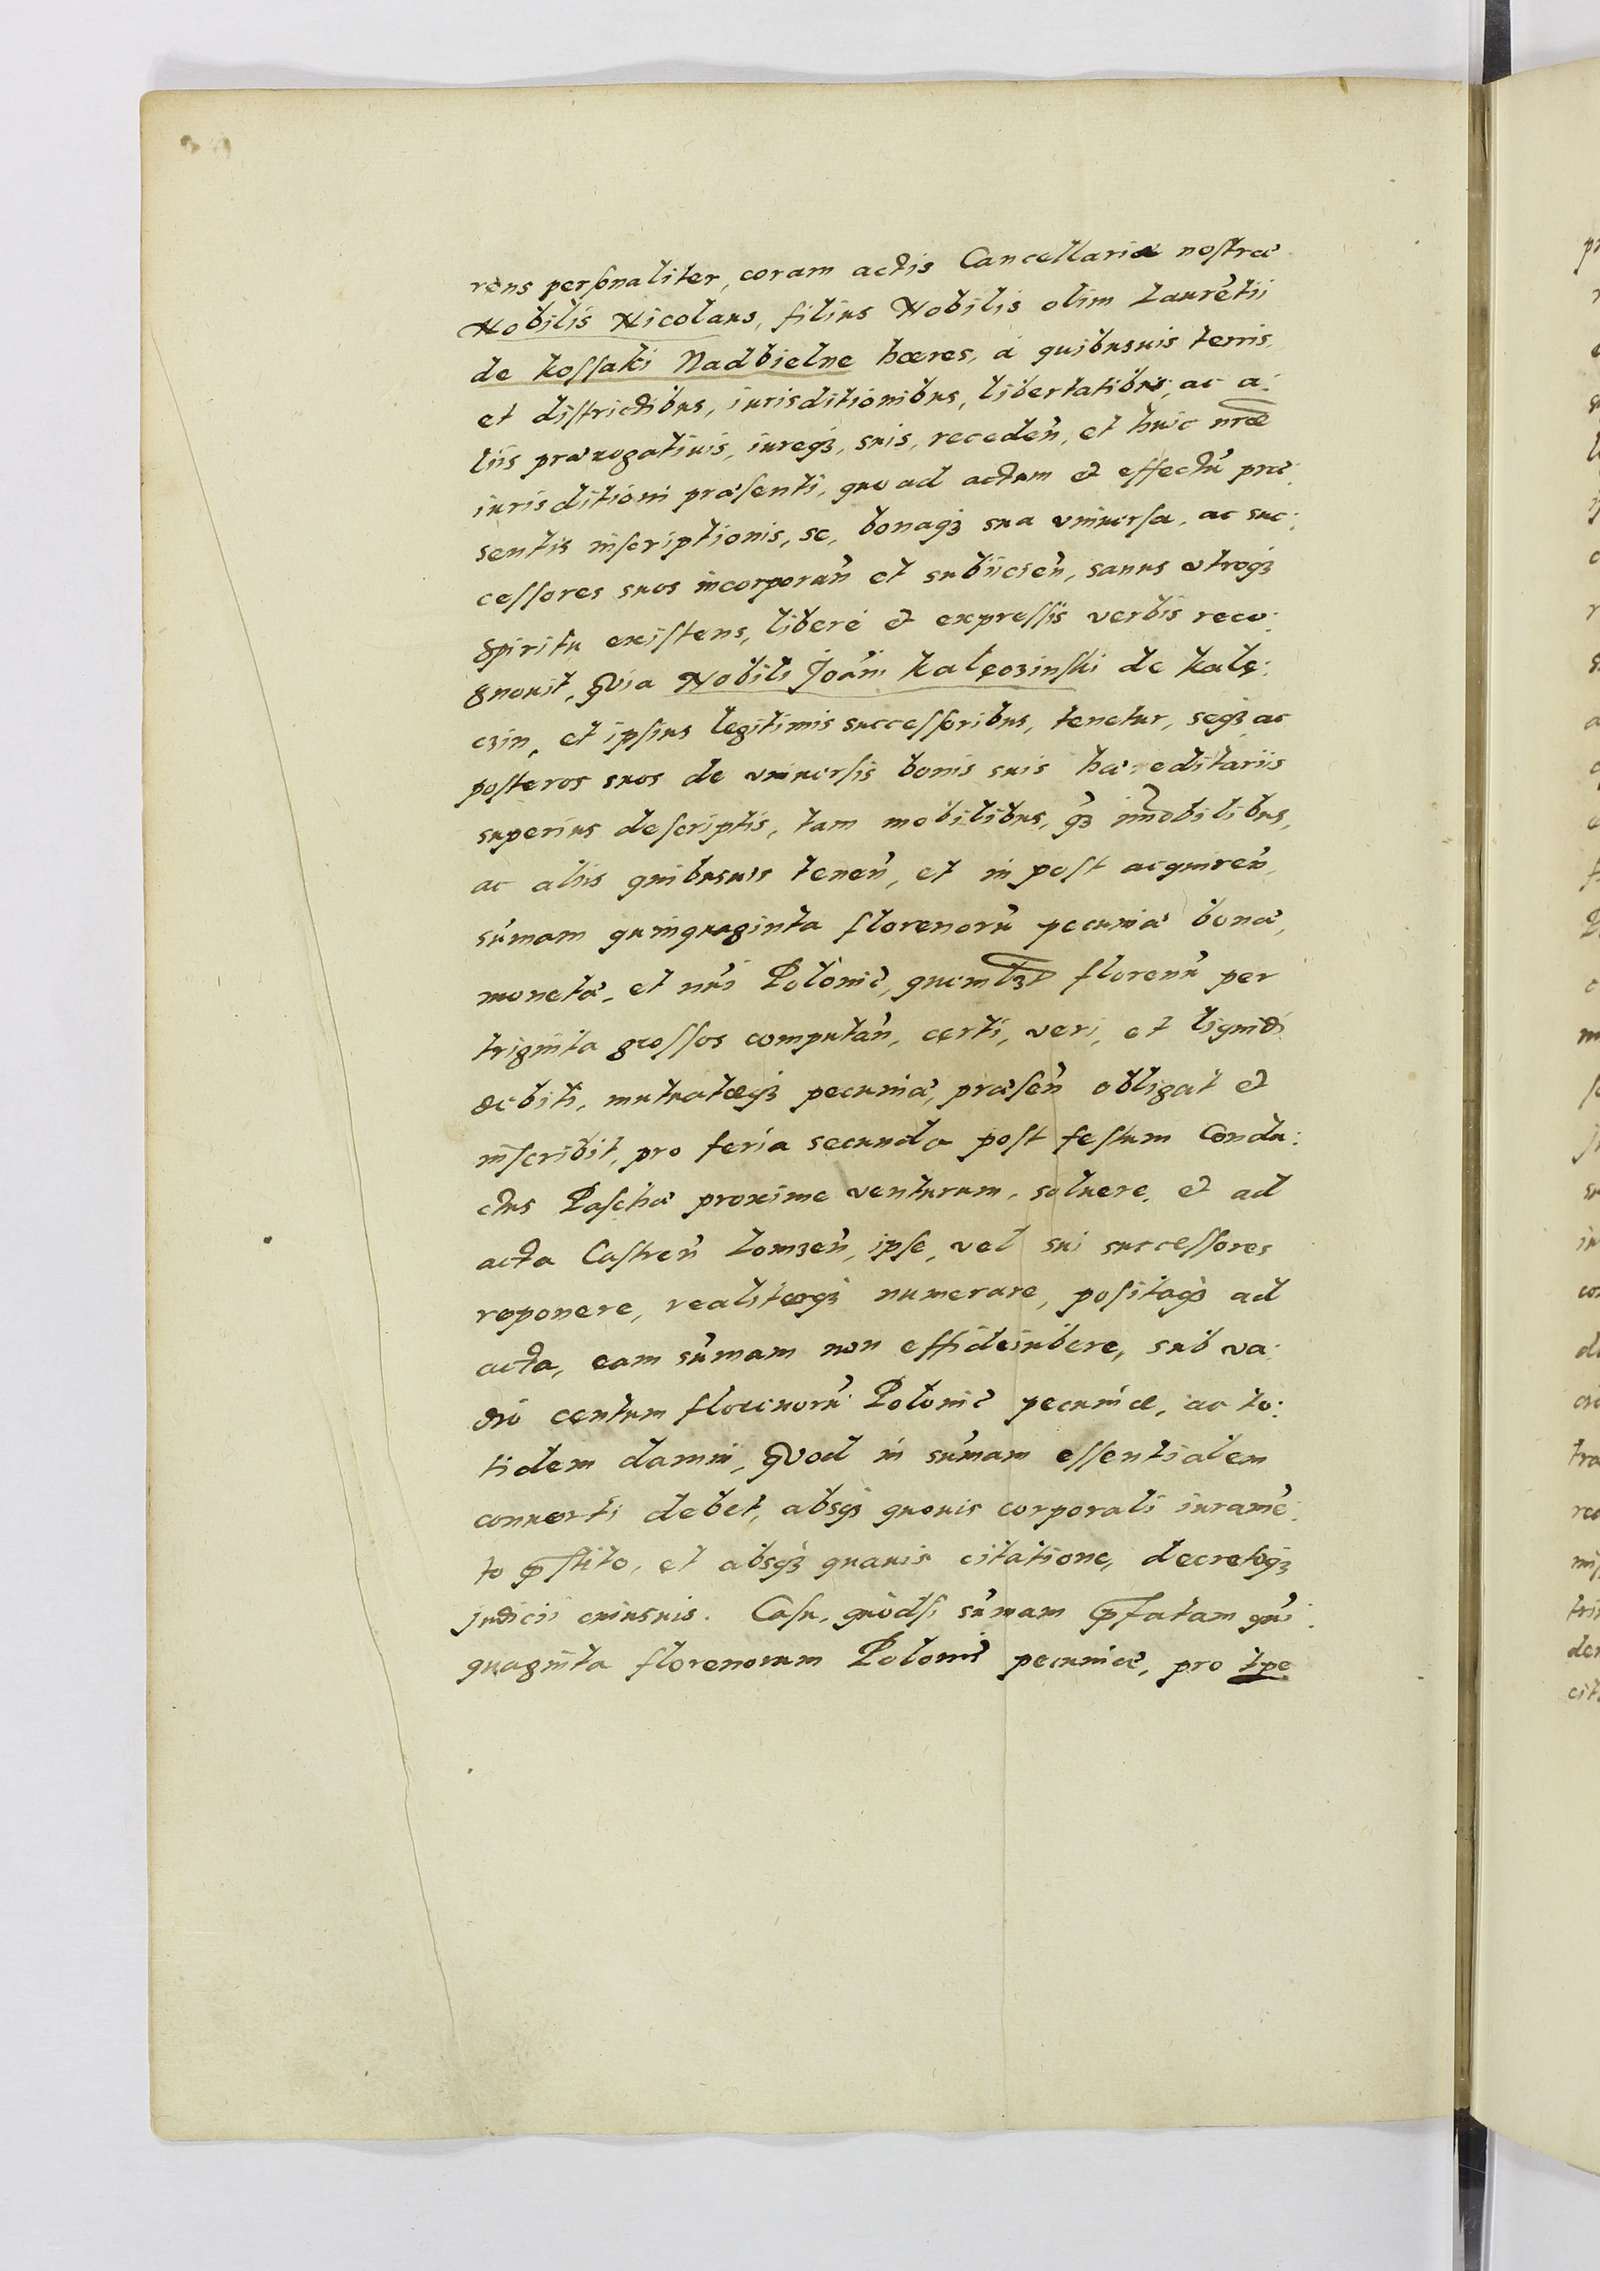 rens personaliter, coram actis Cancellariæ nostræ
Nobilis Nicolaus, filius Nobilis olim Laurẽtii
de Kossaki Nadbielne hæres, á quibusuis terris,
et districtibus, iurisditionibus, libertatibus, ac a:
liis prærogatiuis, iureq3, suis, recedeñ, et huic nr̃æ
iurisditioni præsenti, quo ad actum et effectũ præ:
sentis inscriptionis, se, bonaq3 sua vniuersa, ac suc:
cessores suos incorporañ et subiicieñ, sanus vtroq3
spiritu existens, liberé et expressis verbis reco:
gnouit, Quia Nobili Joañi Kalęczinski de Kalę:
czin, et ipsius legitimis successoribus, tenetur, seq3 ac
posteros suos de vniuersis bonis suis hæreditariis
superius descriptis, tam mobilibus, q̃3 im̃obilibus,
ac aliis quibusuis teneñ, et in post acquireñ,
sum̃am quinquaginta florenorũ pecuniæ bonæ,
monetæ, et nũi Polonic̃, quemlt3 florenũ per
triginta grossos computañ, certi, veri, et liquidi
debiti, mutuatæq3 pecuniæ, præseñ obligat et
inscribit, pro feria secunda post festum Condu:
ctus Paschæ proxime venturum, soluere, et ad
acta Castreñ Lomzeñ, ipse, vel sui successores
reponere, realiterq3 numerare, positaq3 ad
acta, eam sum̃am non effideiubere, sub va:
dio centum florenorũ Polonic̃ pecuniæ, ac to:
tidem damni, Quod in sum̃am essentialem
conuerti debet, absq3 quouis corporali iuramẽ:
to p̃stito, et absq3 quauis citatione, decretoq3
judicii cuiusuis. Casu, quòdsi sum̃am p̃fatam quĩ:
quaginta florenorum Polonic̃ pecuniæ, pro tpe